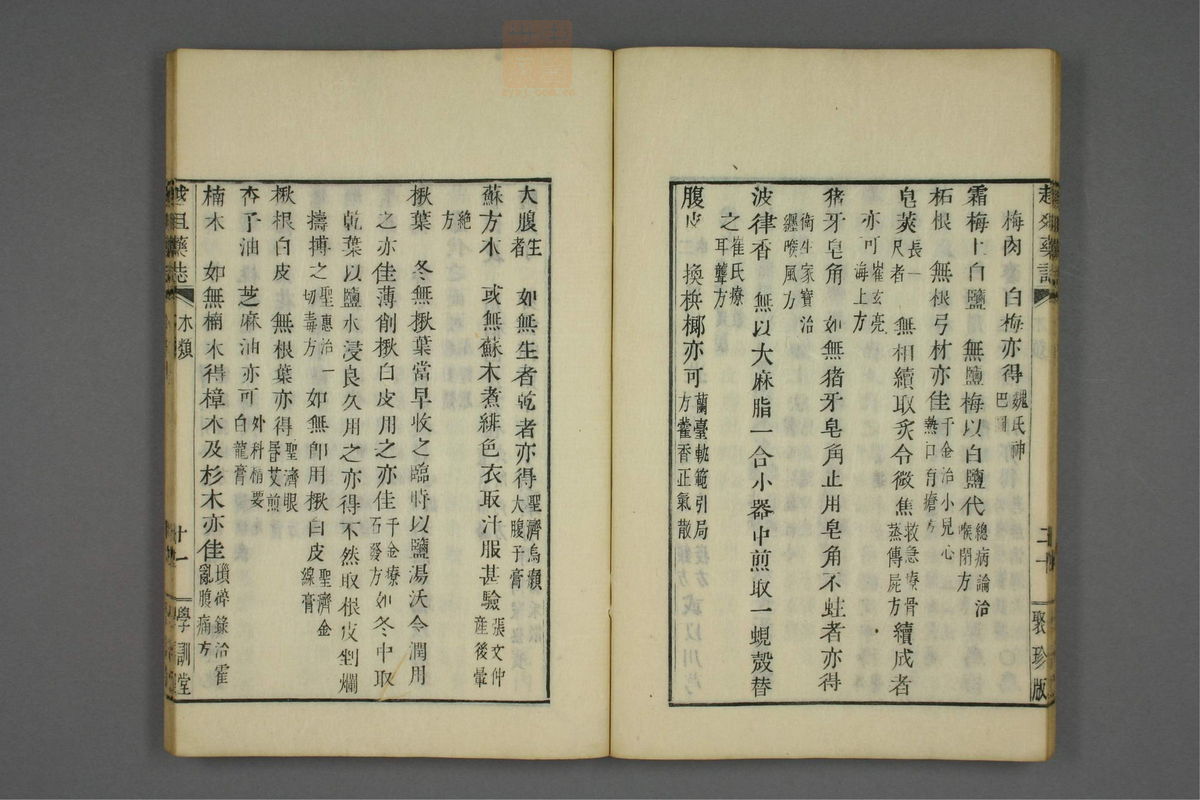 梅肉　白梅亦得魏氏神巴圖
霜梅上白鹽　無鹽梅以白鹽代總病論治喉閉方
柘根　無根弓材亦佳千金治小兒心熱口有瘡方
皂莢長一尺者　無相續取炙令微焦救急療骨蒸傳屍方續成者
亦可崔玄亮海上方
猪牙皂角　如無猪牙皂角止用皂角不蛀者亦得
衛生家寶治纏喉風方
波律香　無以大麻脂一合小器中煎取一蜆殼替
之崔氏療耳聾方
腹皮　換梹榔亦可蘭臺軌範引局方藿香正氣散
聚珍版
大腹生者　如無生者乾者亦得聖濟烏癩大腹子膏
蘇方木　或無蘇木煮緋色衣取汁服甚驗張文仲產後暈
絶方
楸葉　冬無楸葉當早收之臨時以鹽湯沃令潤用
之亦佳薄削楸白皮用之亦佳千金療石發方如冬中取
乾葉以鹽水浸良久用之亦得不然取根皮剉爛
擣搏之聖惠治一切毒方　如無卽用楸白皮聖濟金線膏
楸根白皮　無根葉亦得聖濟眼昏艾煎
杏子油　芝麻油亦可外科精要白龍膏
楠木　如無楠木得樟木及杉木亦佳瑣碎錄治霍亂腹痛方
木類
十一
學訓堂